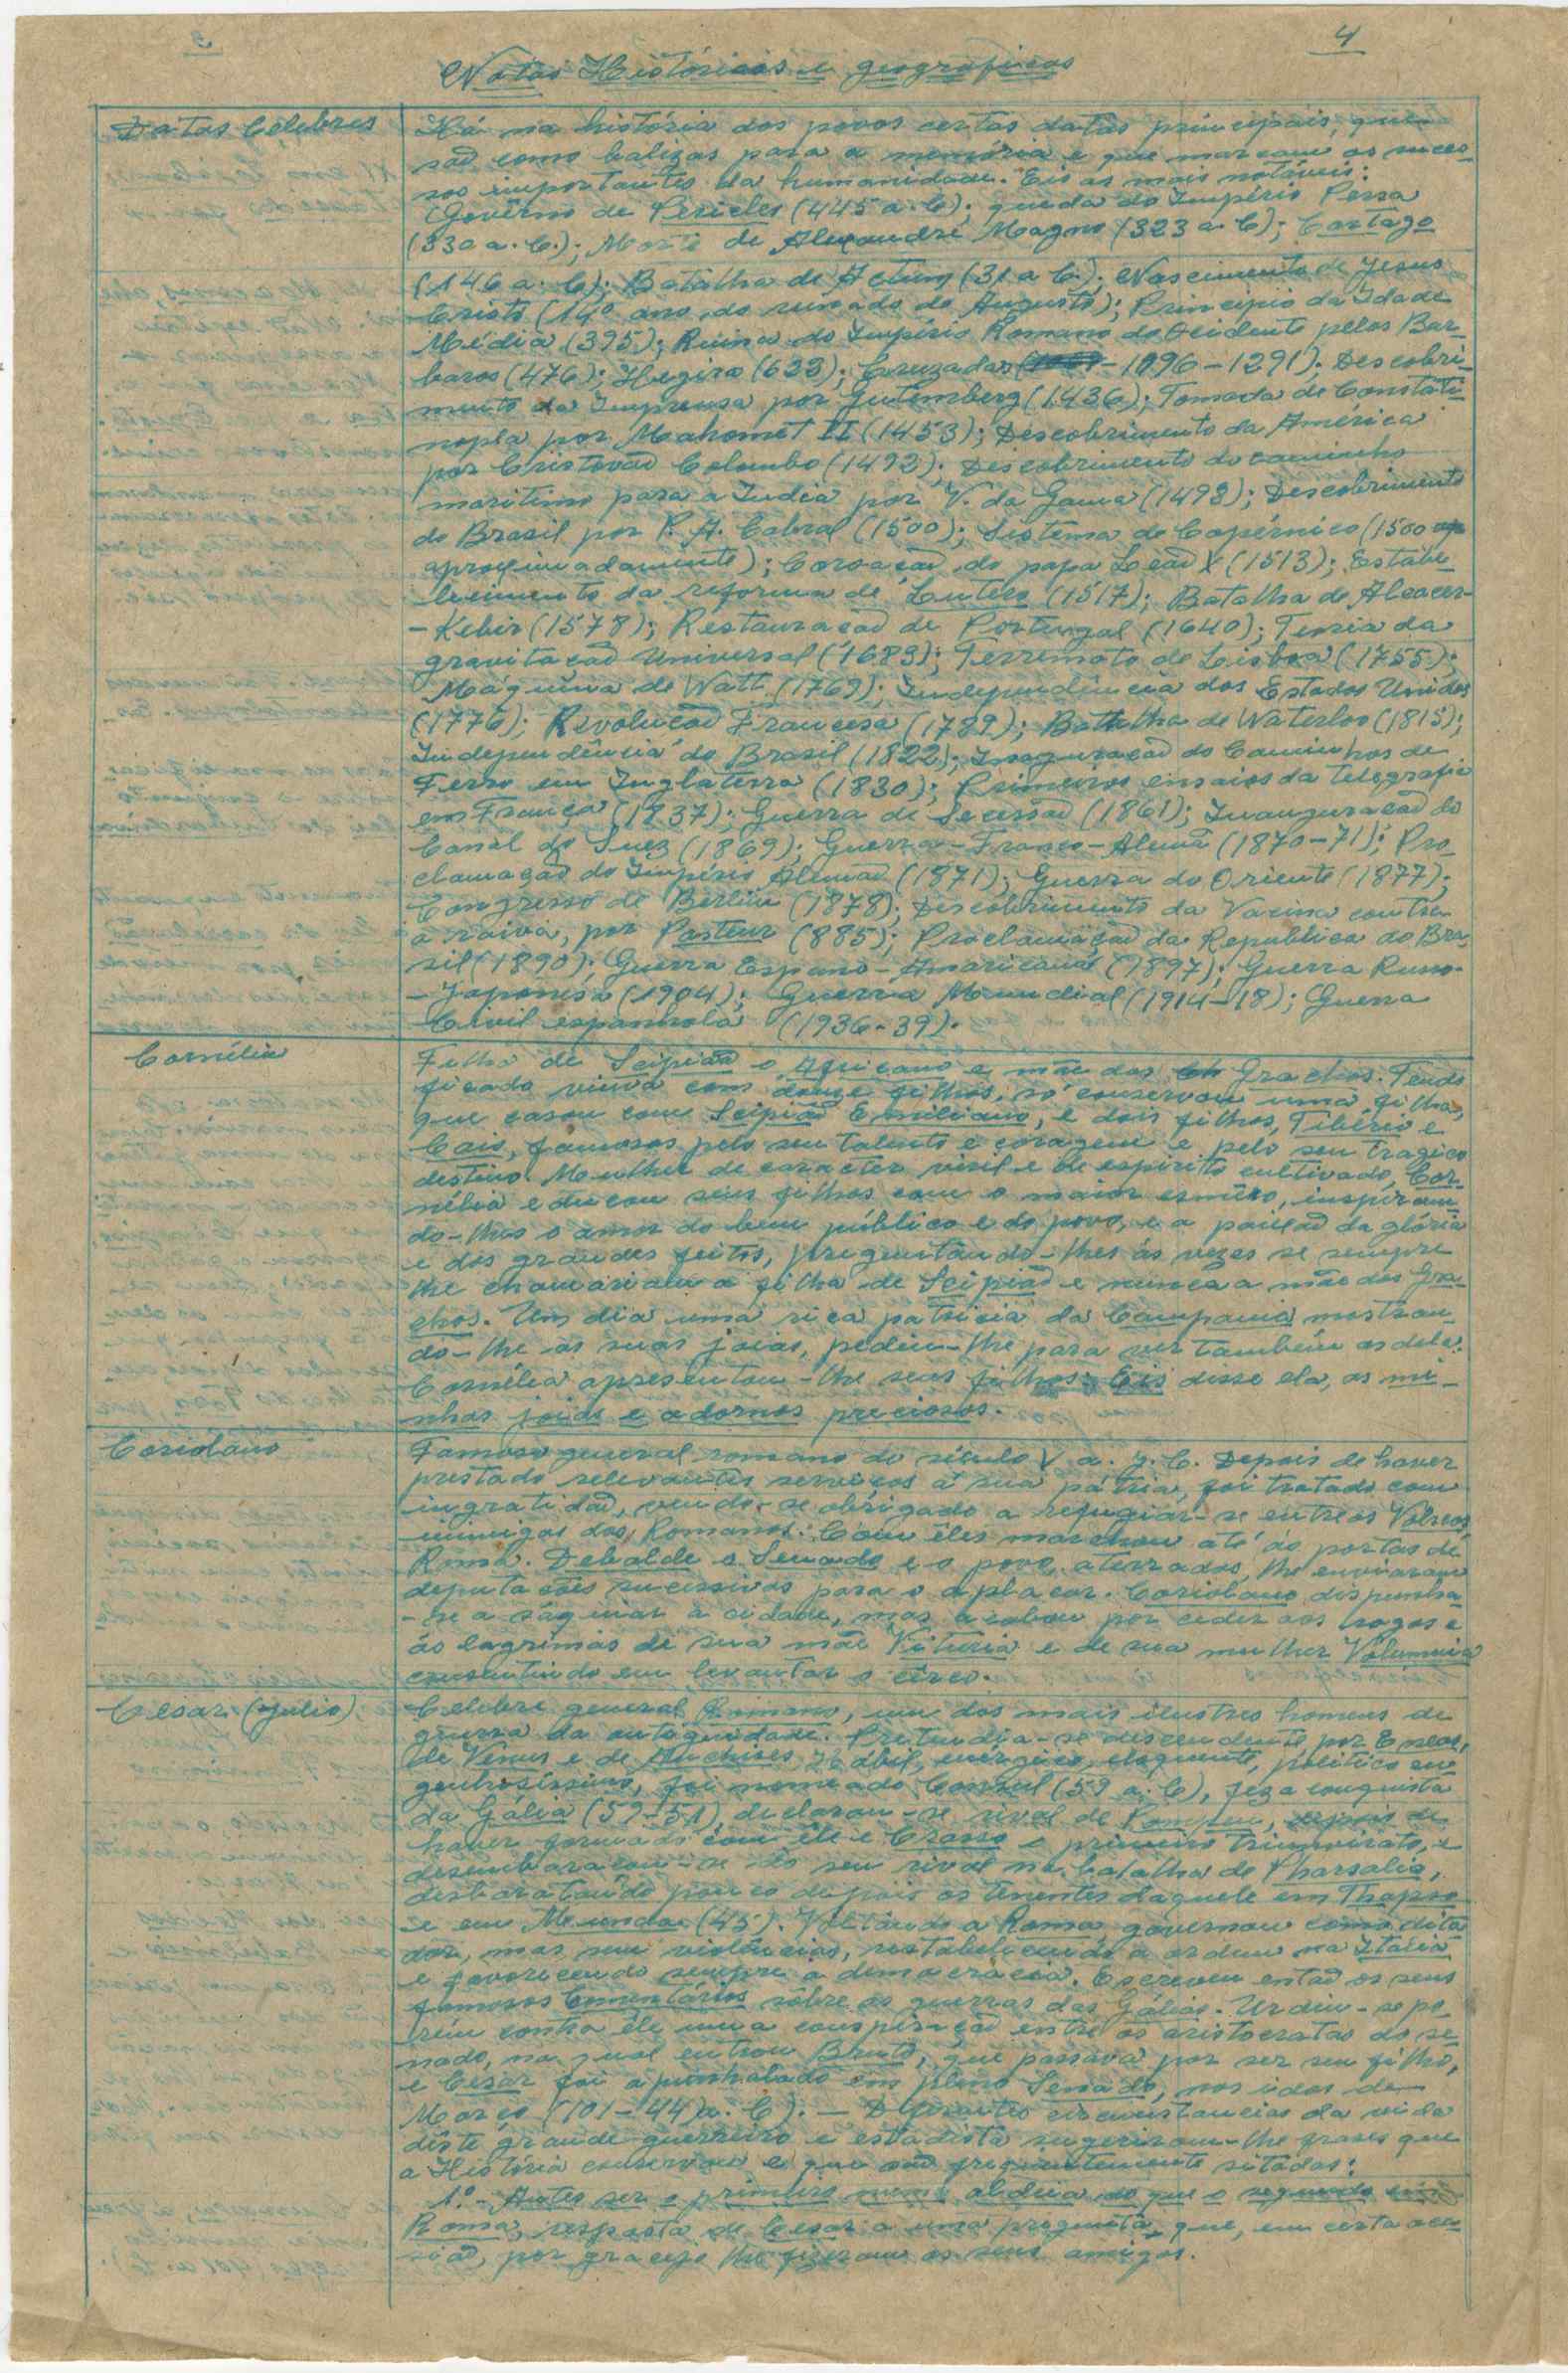 4
Notas Históricas e geográficas
Datas Célebres
Há na história dos povos certas datas principais, que
saõ como balizas para a memória e que marcam os suces-
sos importantes da humanidade. Eis as mais notáveis:
Govêrno de Pericles (445 a. C); queda do Império Persa
(330 a. C.); Morte de Alexandre Magno (323 a. C); Cartago
(146 a. C); Batalha de Actium (31 a C.); Nascimento de Jesus
Cristo (14º ano do reinado de Augusto); Principio da Idade
Média (395); Ruina do Império Romano do Ocidente pelos Bar-
baros (476); Hegira (622); Cruzadas ( - 1096-1291). Descobri-
mento da Imprensa por Gutemberg (1436); Tomada de Constati-
nopla por Mahomet II (1453); Descobrimento da América
por Cristovaõ Colombo (1492); Descobrimento do caminho
maritimo para a India por V. da Gama (1498); Descobrimento
do Brasil por P. A. Cabral (1500); Sistema de Copérnico (1500 ap
aproximadamente); Coroaçaõ do papa Leaõ X (1513); Estabe-
lecimento da reforma de Lutero (1517); Batalha de Alcacer-
-Kebir (1578); Restauraçaõ de Portugal (1640); Teoria da
gravitaçaõ Universal (1683); Terremoto de Lisboa (1755);
Máquina de Watt (1769); Independência dos Estados Unidos
(1776); Revoluçaõ Francesa (1789); Batalha de Waterloo (1815);
Independência do Brasil (1822); Inauguraçaõ do Caminhos de
Ferro em Inglaterra (1830); Primeiros ensaios da telegrafia
em França (1837); Guerra de Secessaõ (1861); Inauguraçaõ do
Canal do Suez (1869); Guerra-Franco-Alemã (1870-71); Pro-
clamaçaõ do Império Alemaõ (1871); Guerra do Oriente (1877);
Congresso de Berlim (1878); Descobrimento da Vacina contra
a raiva, por Pasteur (885); Proclamaçaõ da Republica do Bra-
sil (1890); Guerra Espano-Americana (1897); Guerra Russo-
-Japonesa (1904); Guerra Mundial (1914-18); Guerra
Civil espanhola (1936-39).
Cornélia
Filha de Scipiaõ o Africano e mãe dos Grachos. Tendo
ficado viuva com douze filhos, só conservou uma filha,
que casou com Scipiaõ Emiliano, e dois filhos, Tibério e
Caio, famosos pelo seu talento e coragem e pelo seu tragico
destino. Mulher de caracter viril e de espirito cultivado, Cor-
nélia educou seus filhos com o maior esmêro, inspiran-
do-lhes o amor do bem público e do povo, e a paixaõ da glória
e dos grandes feitos, preguntando-lhes ás vezes se sempre
lhe chamariam a filha de Scipiaõ e nunca a mãe dos Gra-
chos. Um dia uma rica patricia da Campania mostran-
do-lhe as suas joias, pediu-lhe para ver também as dela.
Cornélia apresentou-lhe seus filhos: Eis disse ela, as mi-
nhas joias e adornos preciosos.
Coriolano
Famoso general romano do século V a. J. C. Depois de haver
prestado relevantes serviços á sua pátria, foi tratado com
ingratidaõ, vendo-se obrigado a refugiar-se entre os Volscos,
inimigos dos Romanos. Com êles marchou até ás portas de
Roma. Debalde o Senado e o povo, aterrados, lhe enviaram
deputações sucessivas para o aplacar. Coriolano dispunha-
-se a saquear a cidade, mas acabou por ceder aos rogos e
ás lagrimas de sua mãe Vituria e de sua mulher Volumnia
consentindo em levantar o cêrco.
Cesar (Julio)
Celebre general Romano, um dos mais ilustres homens de
guerra da antiguidade. Pretendia-se descendente por Eneas,
de Venus e de Anchises. Hábil, enérgico, eloquente, politico en-
genhosissimo, foi nomeado Consul (59 a. C), fez a conquista
da Gália (59-51), declarou-se rival de Pompeu, depois de
haver formado com êle e Crasso o primeiro triumvirato, e
desembaraçou-se do seu rival na batalha de Pharsalia,
desbaratando pouco depois os tenentes daquele em Thapso
e em Munda (45). Voltando a Roma, governou como dita-
dor, mas sem violências, restabelecendo a ordem na Italia
e favorecendo sempre a democracia. Escreveu entaõ os seus
famosos Comentários sôbre as guerras das Gálias. Urdiu-se po-
rém contra êle uma conspiraçaõ entre os aristocratas do se-
nado, na qual entrou Bruto, que passava por ser seu filho,
e Cesar foi apunhalado em pleno Senado, nos idos de
Março (101-44) a. C). - Diferentes circunstancias da vida
dêste grande guerreiro e estadista sugeriram-lhe frases que
a História conservou e que saõ frequentemente sitadas:
1.º - Antes ser o primeiro numa aldeia do que o segundo em
Roma, resposta de Cesar a uma pregunta, que, em certa oca-
siaõ, por gracejo lhe fizeram os seus amigos.